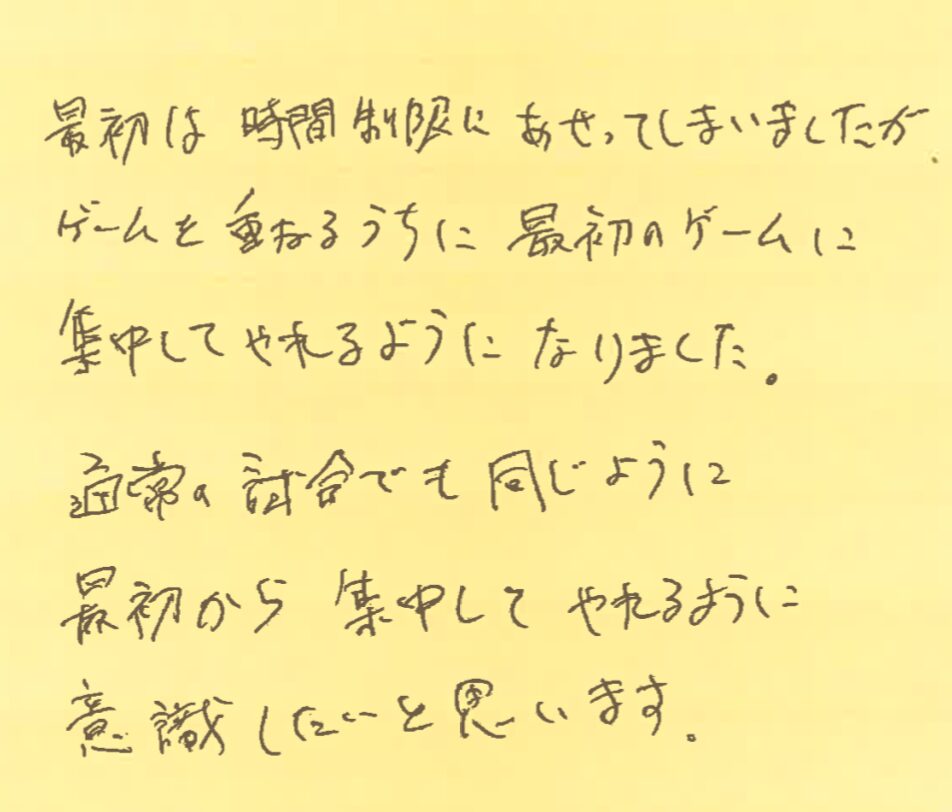 最初は時間制限にあせってしまいましたが、
ゲームを重ねるうちに最初のゲームに
集中してやれるようになりました。
通常の試合でも同じように
最初から集中してやれるように
意識したいと思います。